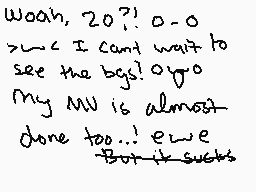 woah, 20?! o-o
>w< I cant wait to
see the bgs! owo
My MV is almost
done too..! ewe
But it sucks